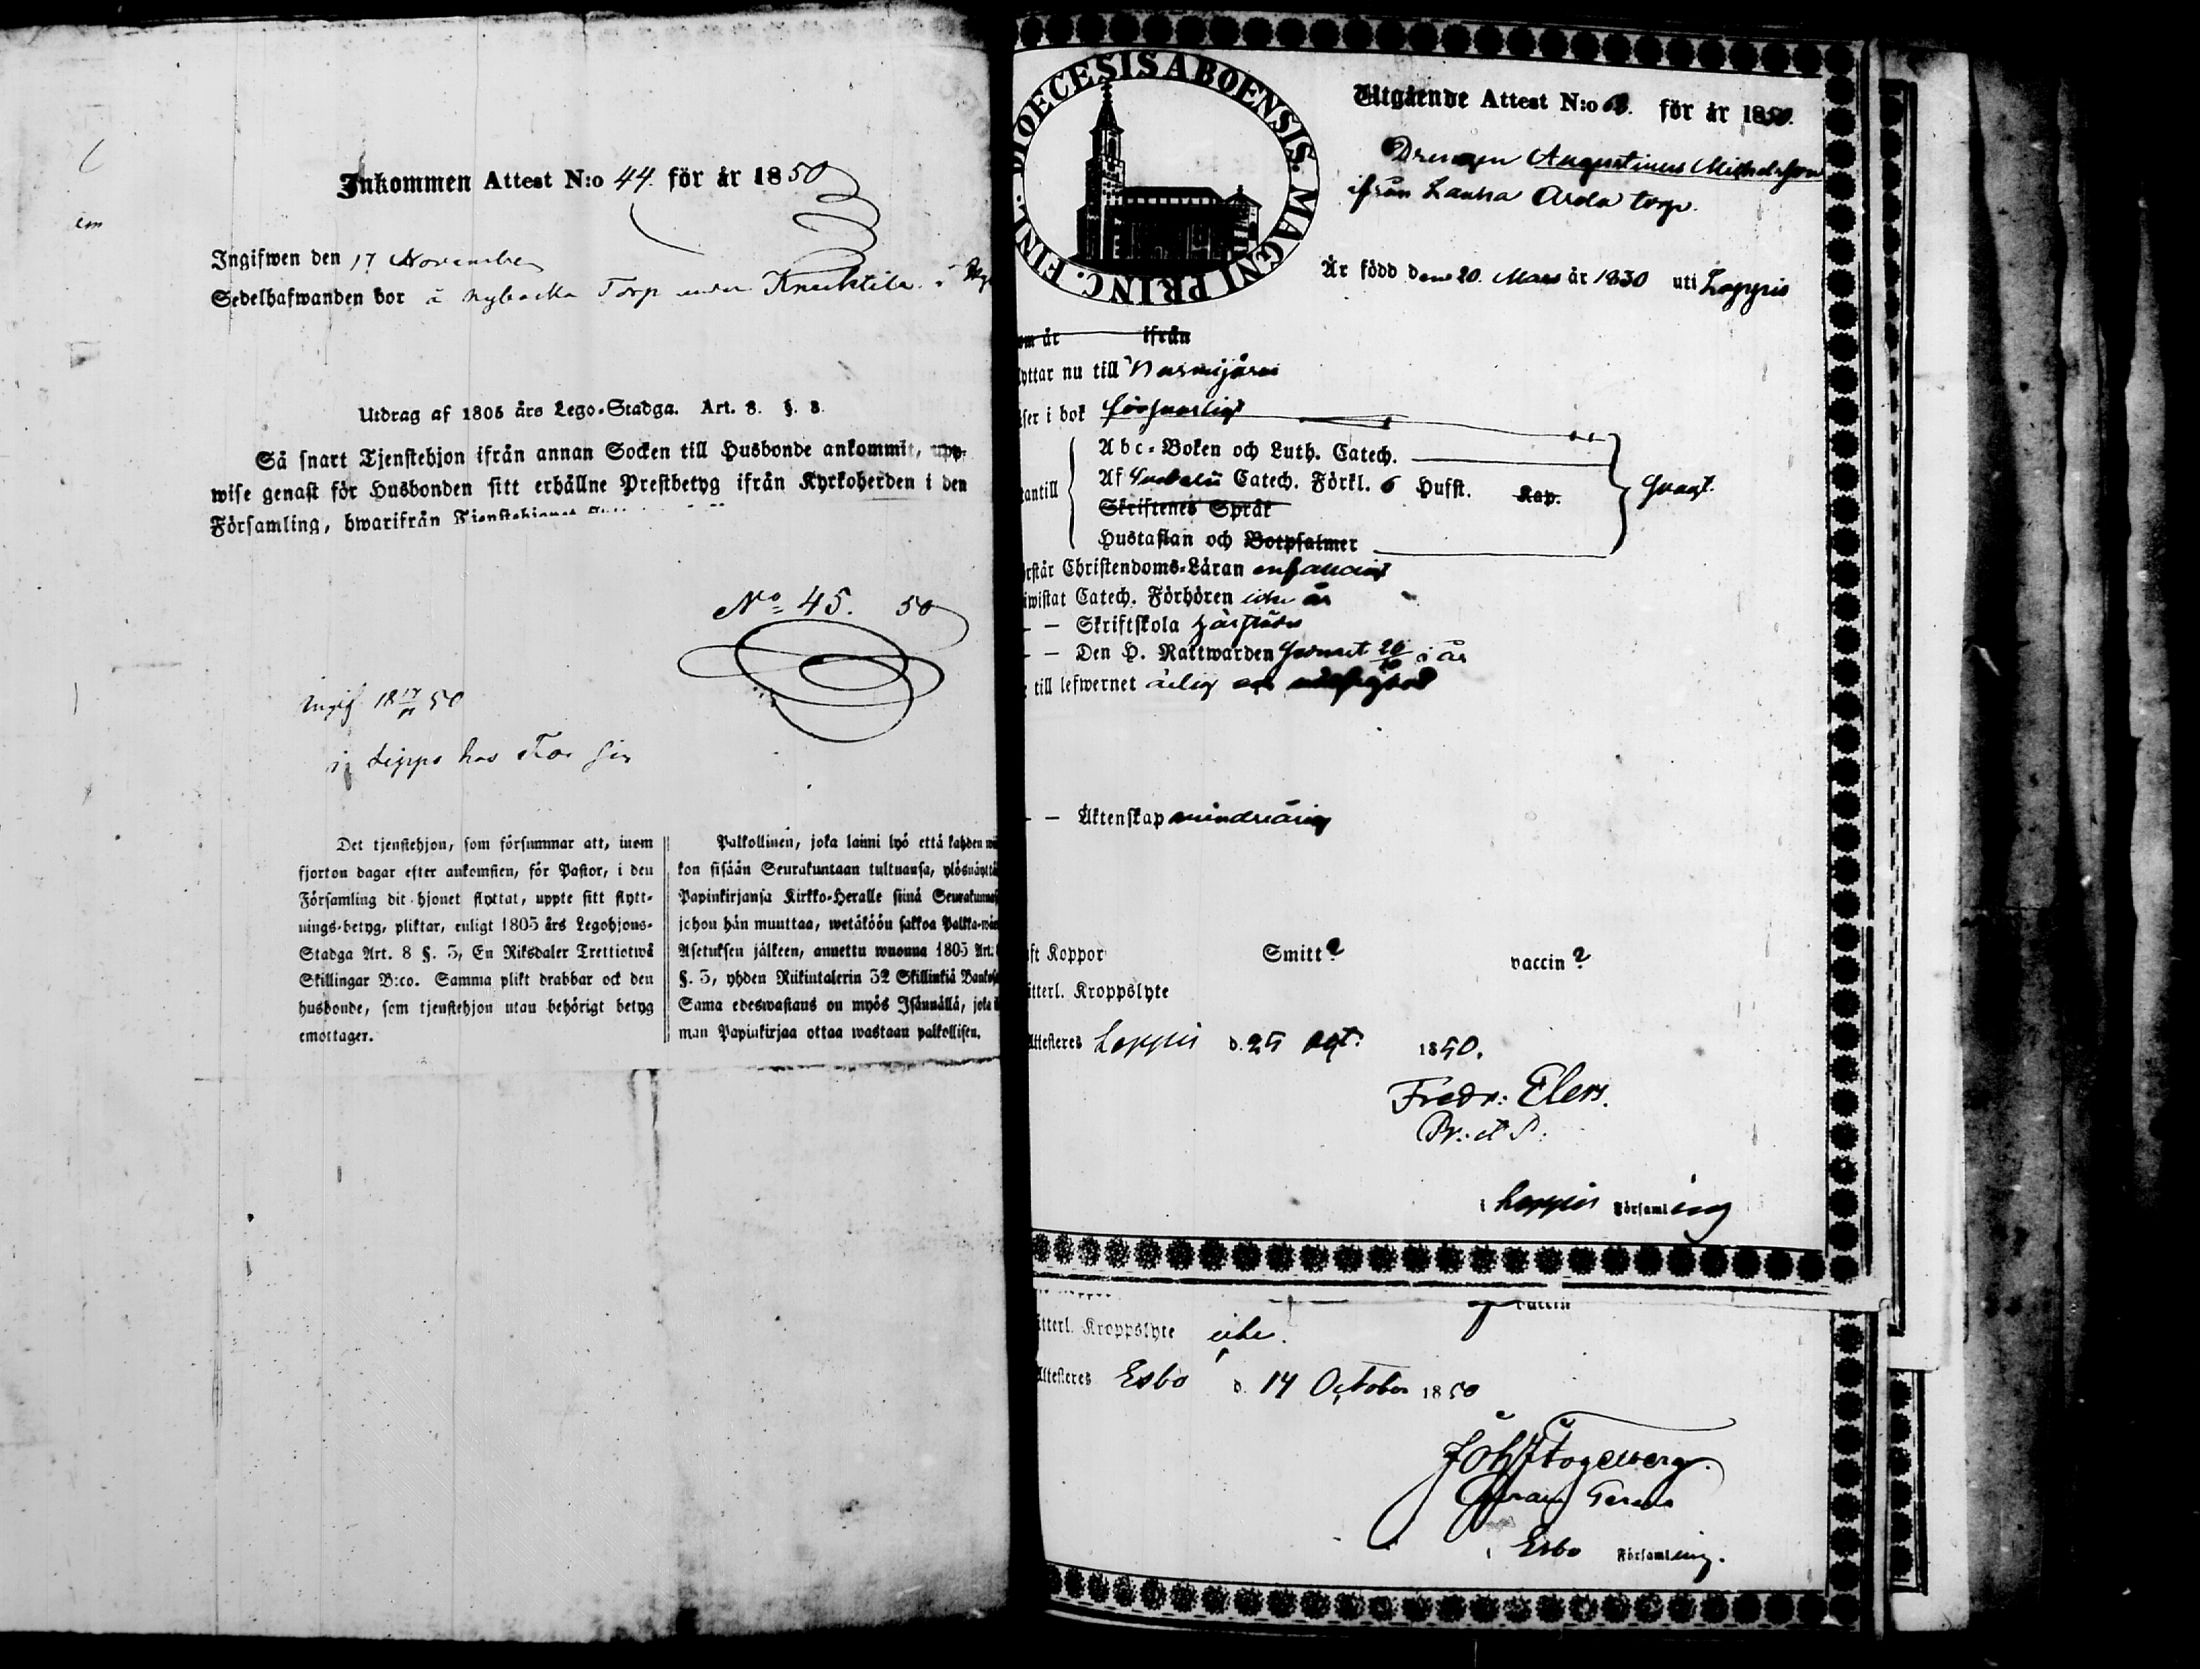 Inkommen Attest N:o 44. för år 1850
Ingifwen den 17 November
Sedelhafwanden bor å Nybacka Torp under Knecktila i
Utdrag af 1805 års Lego-Stadga. Art. 8. §. 3.
Så snart Tjenstehjon ifrån annan Socken till Husbonde ankommit, upp-
wise genast för Husbonden sitt erhållne Prestbetyg ifrån Kyrkoherden i den
Församling, hwarifrån Tjenstehjonet
No 45. 50
Ingif 18 17/11 50
Det tjenstehjon, som försummar att, inom
fjorton dagar efter ankomsten, för Pastor, i den
Församling dit hjonet flyttat, uppte sitt flytt-
nings-betyg, pliktar, enligt 1805 års Legohjons-
Stadga Art. 8 §. 3, En Riksdaler Trettiotwå
Skillingar B:co. Samma plikt drabbar ock den
husbonde, som tjenstehjon utan behörigt betyg
emottager.
Palkollinen, joka laimi lyö että kahden wii
kon sisään Seurakuntaan tultuansa, ylösnäyttä
Papinkirjansa Kirkko-Heralle siinä Seurakunnas
johon hän muuttaa, wetäköön sakkoa Palkka-wäen
Asetuksen jälkeen, annettu wuonna 1805 Art.
§. 3, yhden Riikintalerin 32 Skillinkiä Bankos
Sama edeswastaus on myös Isännällä, joka i
man Papinkirjaa ottaa wastaan palkollisen.
DIOECESIS ABOENSIS. MAGNI PRINC. FINL.
Utgående Attest N:o 68. för år 1850.
Drengen Augustinus Michelsson
ifrån Lauha Arola torp.
Är född den 20. Mars år 1830 uti Loppis
om är ifrån
lyttar nu till Nurmijärvi
äser i bok försvarligt
Abc-Boken och Luth. Catech.
antill Af Svebelii Catech. Förkl. 6 Hufst. Kap. svagt.
Skriftenes Språk
Hustaflan och Botpsalmer
rstår Christendoms-Läran enfaldigt
iwistat Catech. Förhören icke år
— Skriftskola härstädes
— Den H. Nattwarden sednast 20/10 i år
till lefwernet ärlig och
— Äktenskap minderårig
ft Koppor Smitt? vaccin?
itterl. Kroppslyte
Attesteres Loppis d. 25 Oct: 1850.
Fredr: Elers.
i Loppis Församling
vaccin
itterl. Kroppslyte icke.
Attesteres Esbo d. 14 October 1850
i Esbo Församling.